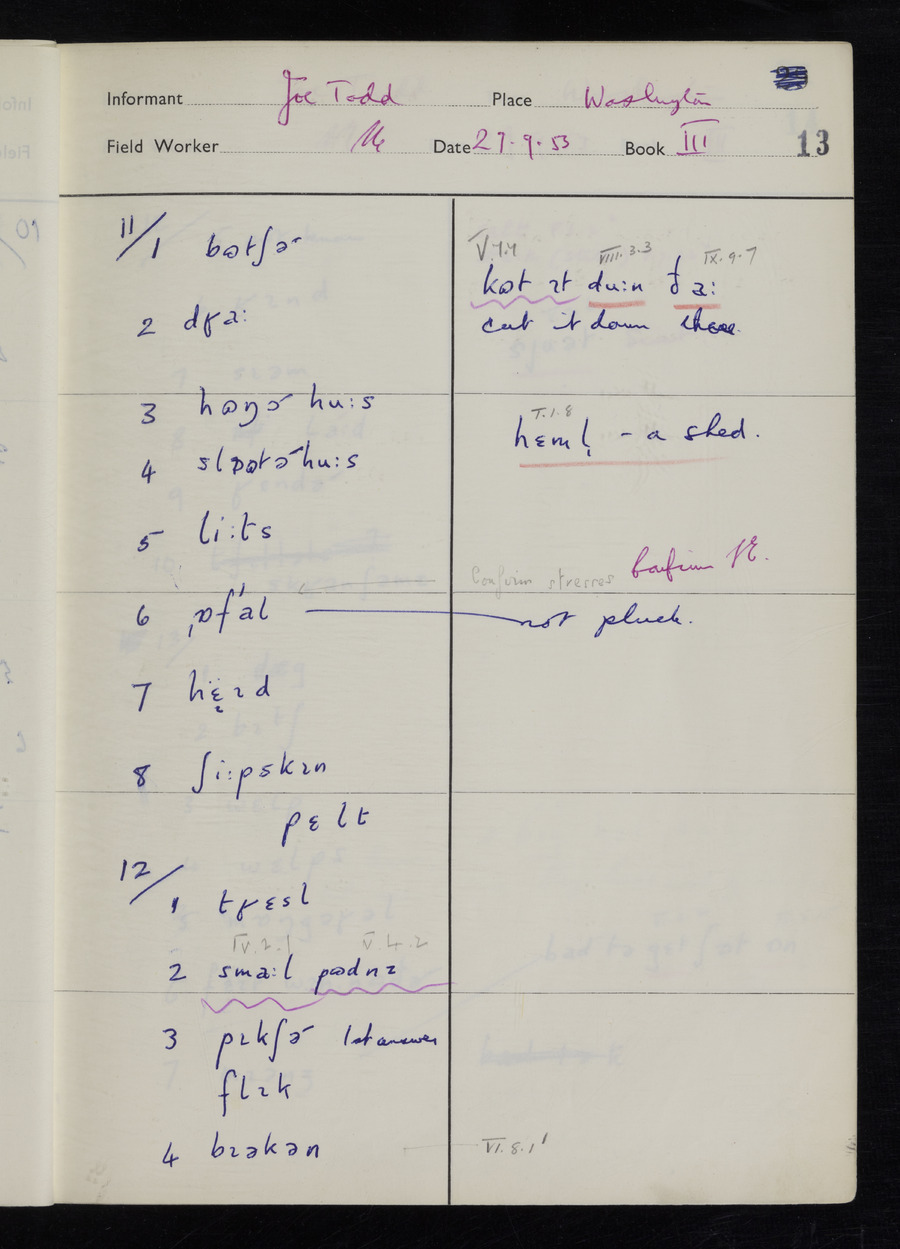 Informant Joe Todd Place Washington
Field Worker Date 27.9.53 Book III 13
11/1 bɷtʃə
V.7.7 VIII.3.3 IX.9.7
kɷt ɪt du:n ða:
2 dʁa:
cut it down there
3 hɷŋə hu:s
V.1.8
hɛml̩ - a shed.
4 slɷtə hu:s
5 li:ts
Confirm stresses
6 ˌɒfˈal not pluck.
7 hɛɪd
8 ʃi:pskɪn
pɛlt
12/1 tʁɛsl
IV.2.1 V.4.2
2 sma:l pɷdnz
3 pɪkʃə 1st answer
flɪk
4 bɪəkən VI.8.1'